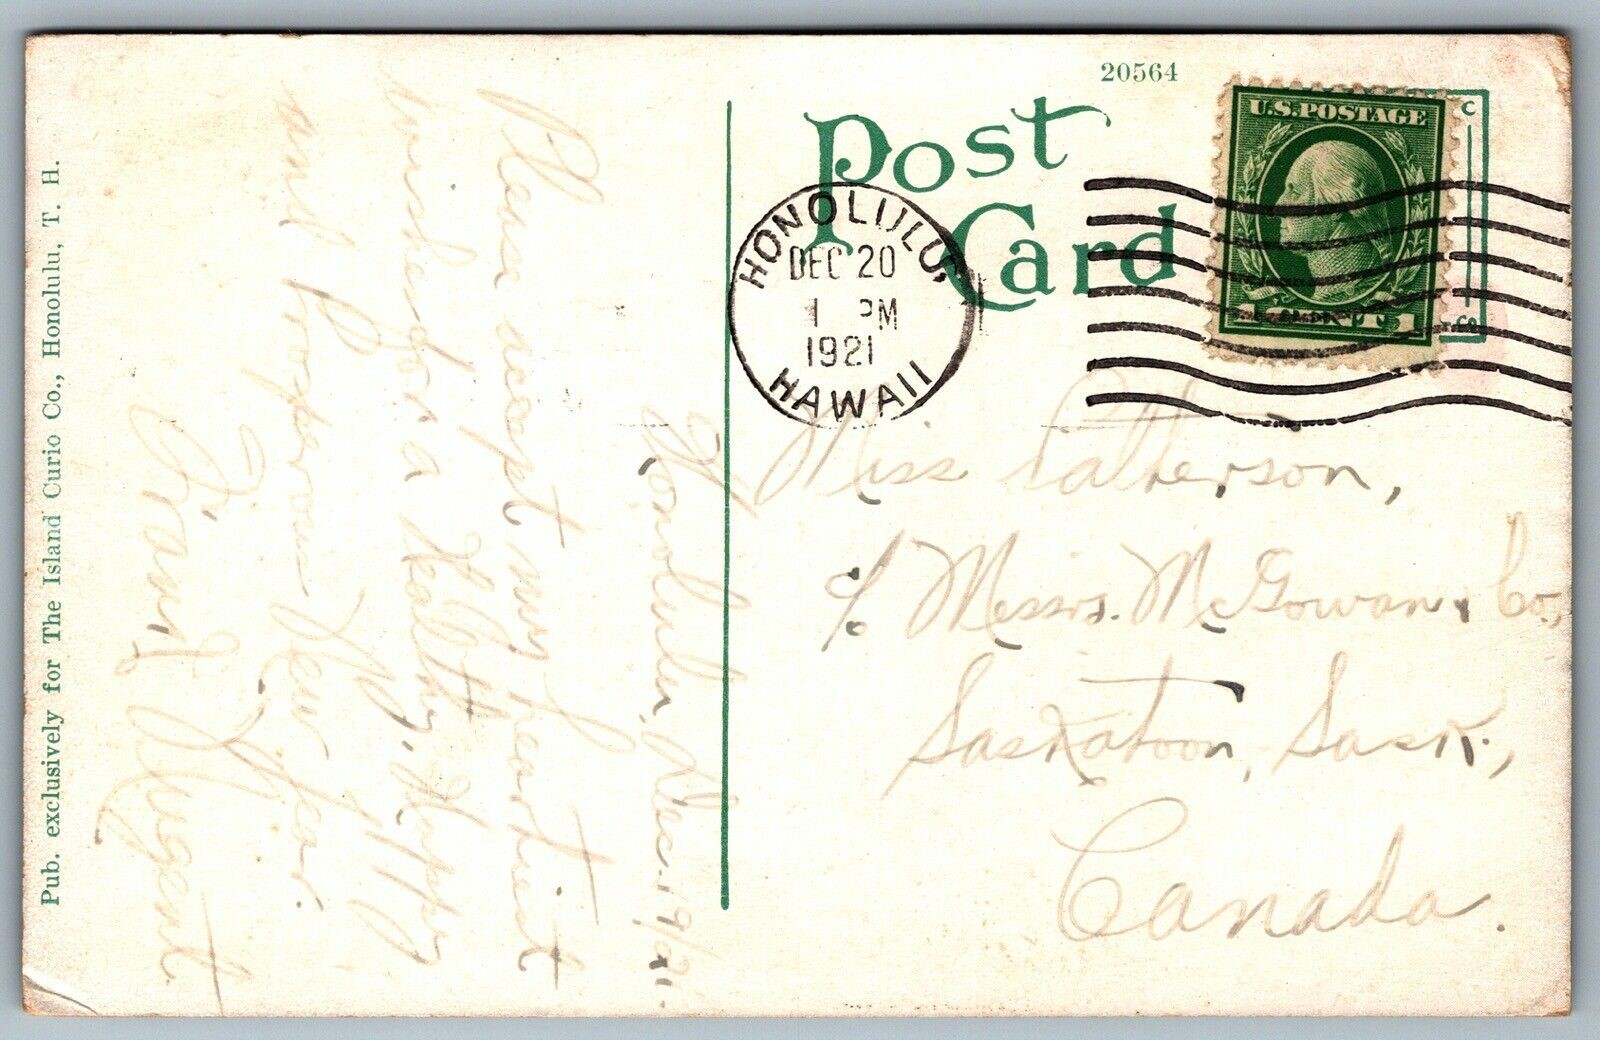 20564
Post
Card
U.S. POSTAGE
1 CENT 1
HONOLULU,
DEC 20
1 PM
1921
HAWAII
Honolulu, Dec. 19/21.
Please accept my heartiest
wishes for a Healthy, Happy
and Prosperous New Year.
Frank Nugent
Miss Patterson,
℅ Messrs. McGowan & Co.,
Saskatoon, Sask.,
Canada.
Pub. exclusively for The Island Curio Co., Honolulu, T. H.